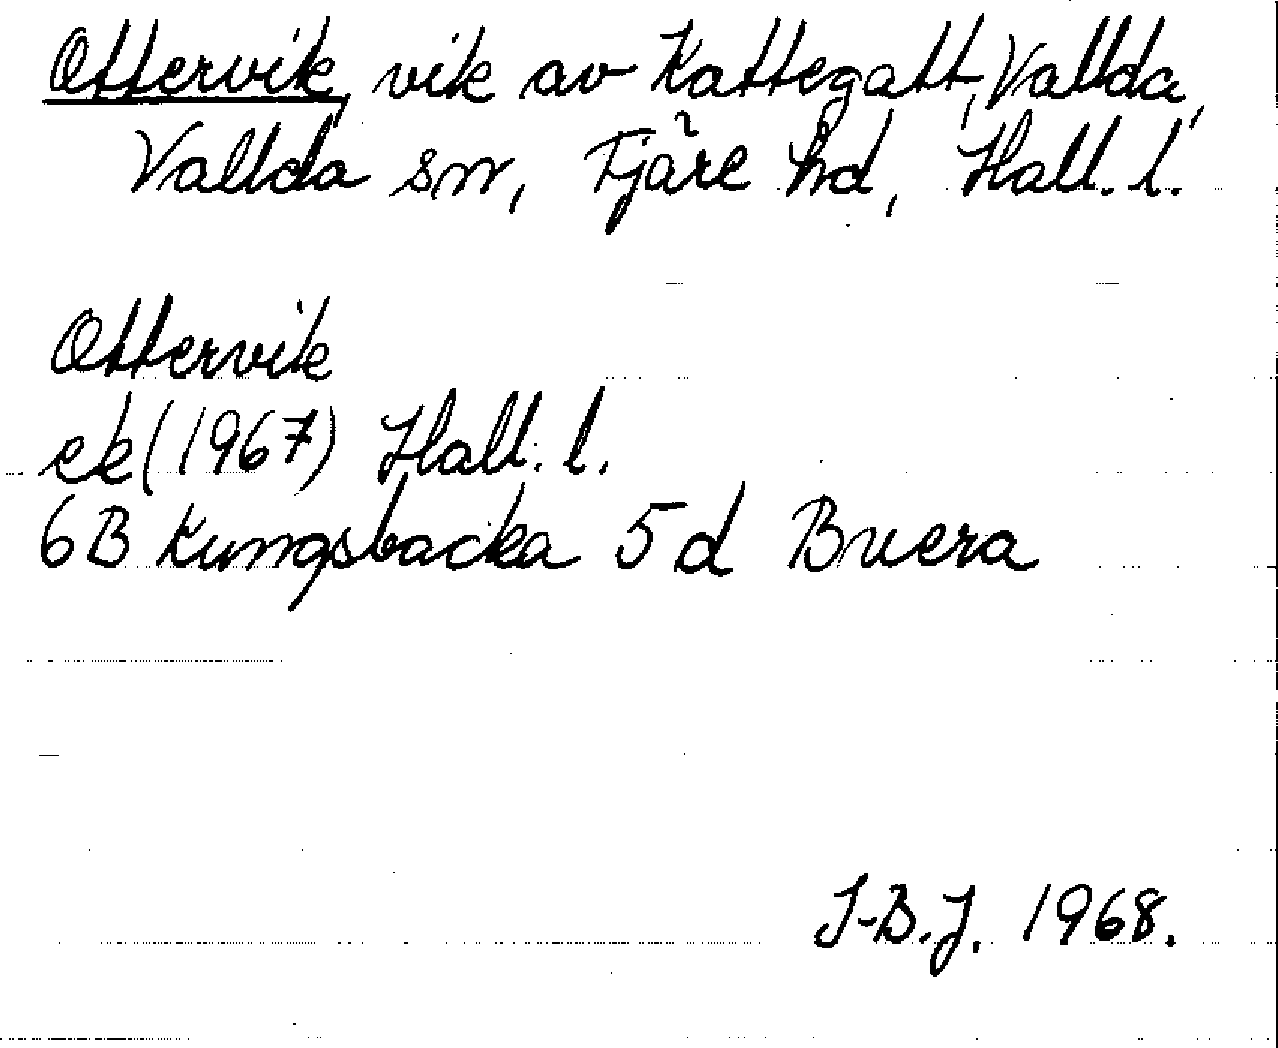 Ottervik, vik av Kattegatt, Vallda,
Vallda sn, Fjäre hd, Hall. l.
Ottervik
ek (1967) Hall. l.
6B Kungsbacka 5d Buera
I-B.J. 1968.